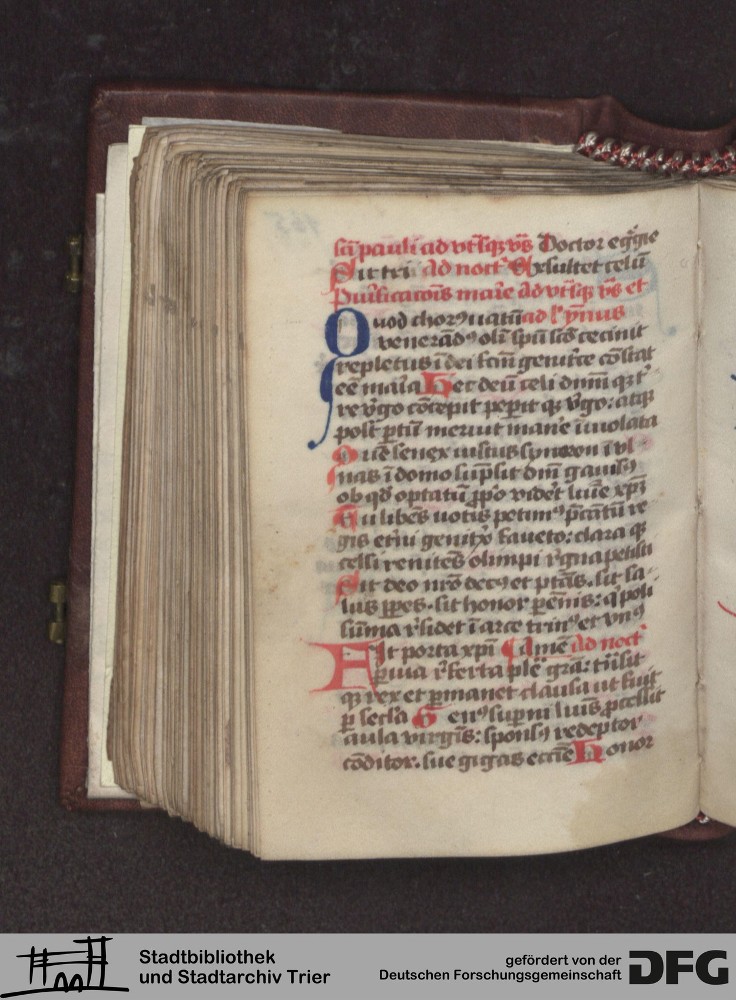 sci pauli ad vtsq̢ vs̄ Doctor eg̾gie
Sit tri Ad noct Exsultet celū
Purificacōis marie ad vtsq̢ vs̄ et
Quod chorꝰ uatū ad hymnus
venerādꝰ oli spū scō cecinit
repletus ī dei fcm̄ genit͛ce cōstat
eē maīa Hec deū celi dnm̄ q̢ t͛
re v͛go cōcepit pep̄it q̢ v͛go: atq̢
post p̄tū meruit man͛e īuiolata
Quē senex iustus symeon ī vl
nas ī domo sūpsit dnī gauisꝰ
ob qd̄ optatū pp̄o videt lūie xp̄m
Tu libēs uotis petimꝰ p̄catū re
gis et͛ni genitͥx faueto: clara q̢
celsi renitēs olimpi r͛gna petisti
Sit deo nr̄o decꝰ et ptās. sit sa
lus ppes. sit honor pēnis: q̄ poli
sūma r͛sidet ī arce trinꝰ et vnꝰ
Fit porta xp̄i Amē Ad noct
puia r͛ferta plē gr̄a: trāsit
q̢ rex et pmanet clausa ut fuit
p secl̄a Genꝰ sup̄ni luīs pcessit
aula virgīs: sponsꝰ redēptor
cōditor. sue gigas ecc̄ie Honor
Stadtbibliothek
und Stadtarchiv Trier
gefördert von der
Deutschen Forschungsgemeinschaft
DFG